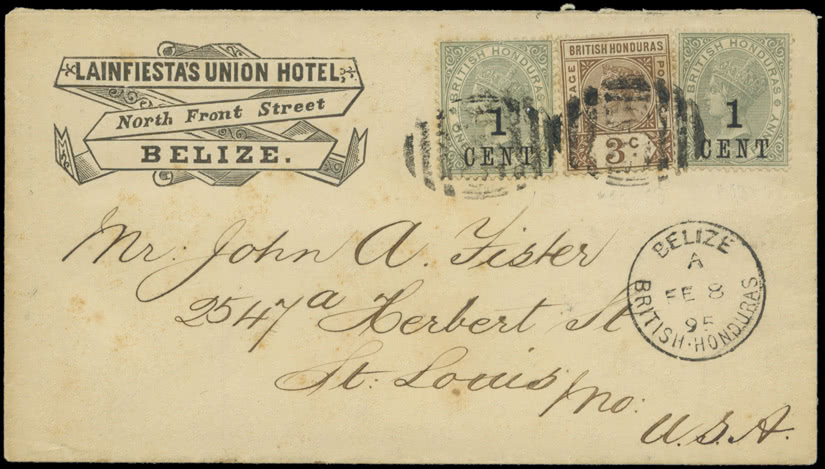 LAINFIESTA'S UNION HOTEL,
North Front Street
BELIZE.
BRITISH HONDURAS
ONE PENNY
1
CENT
BRITISH HONDURAS
POSTAGE
3c
BRITISH HONDURAS
PENNY
1
CENT
BELIZE
A
FE 8
95
BRITISH·HONDURAS
Mr. John A. Fister
2547a Herbert St
St. Louis
Mo.
U.S.A.